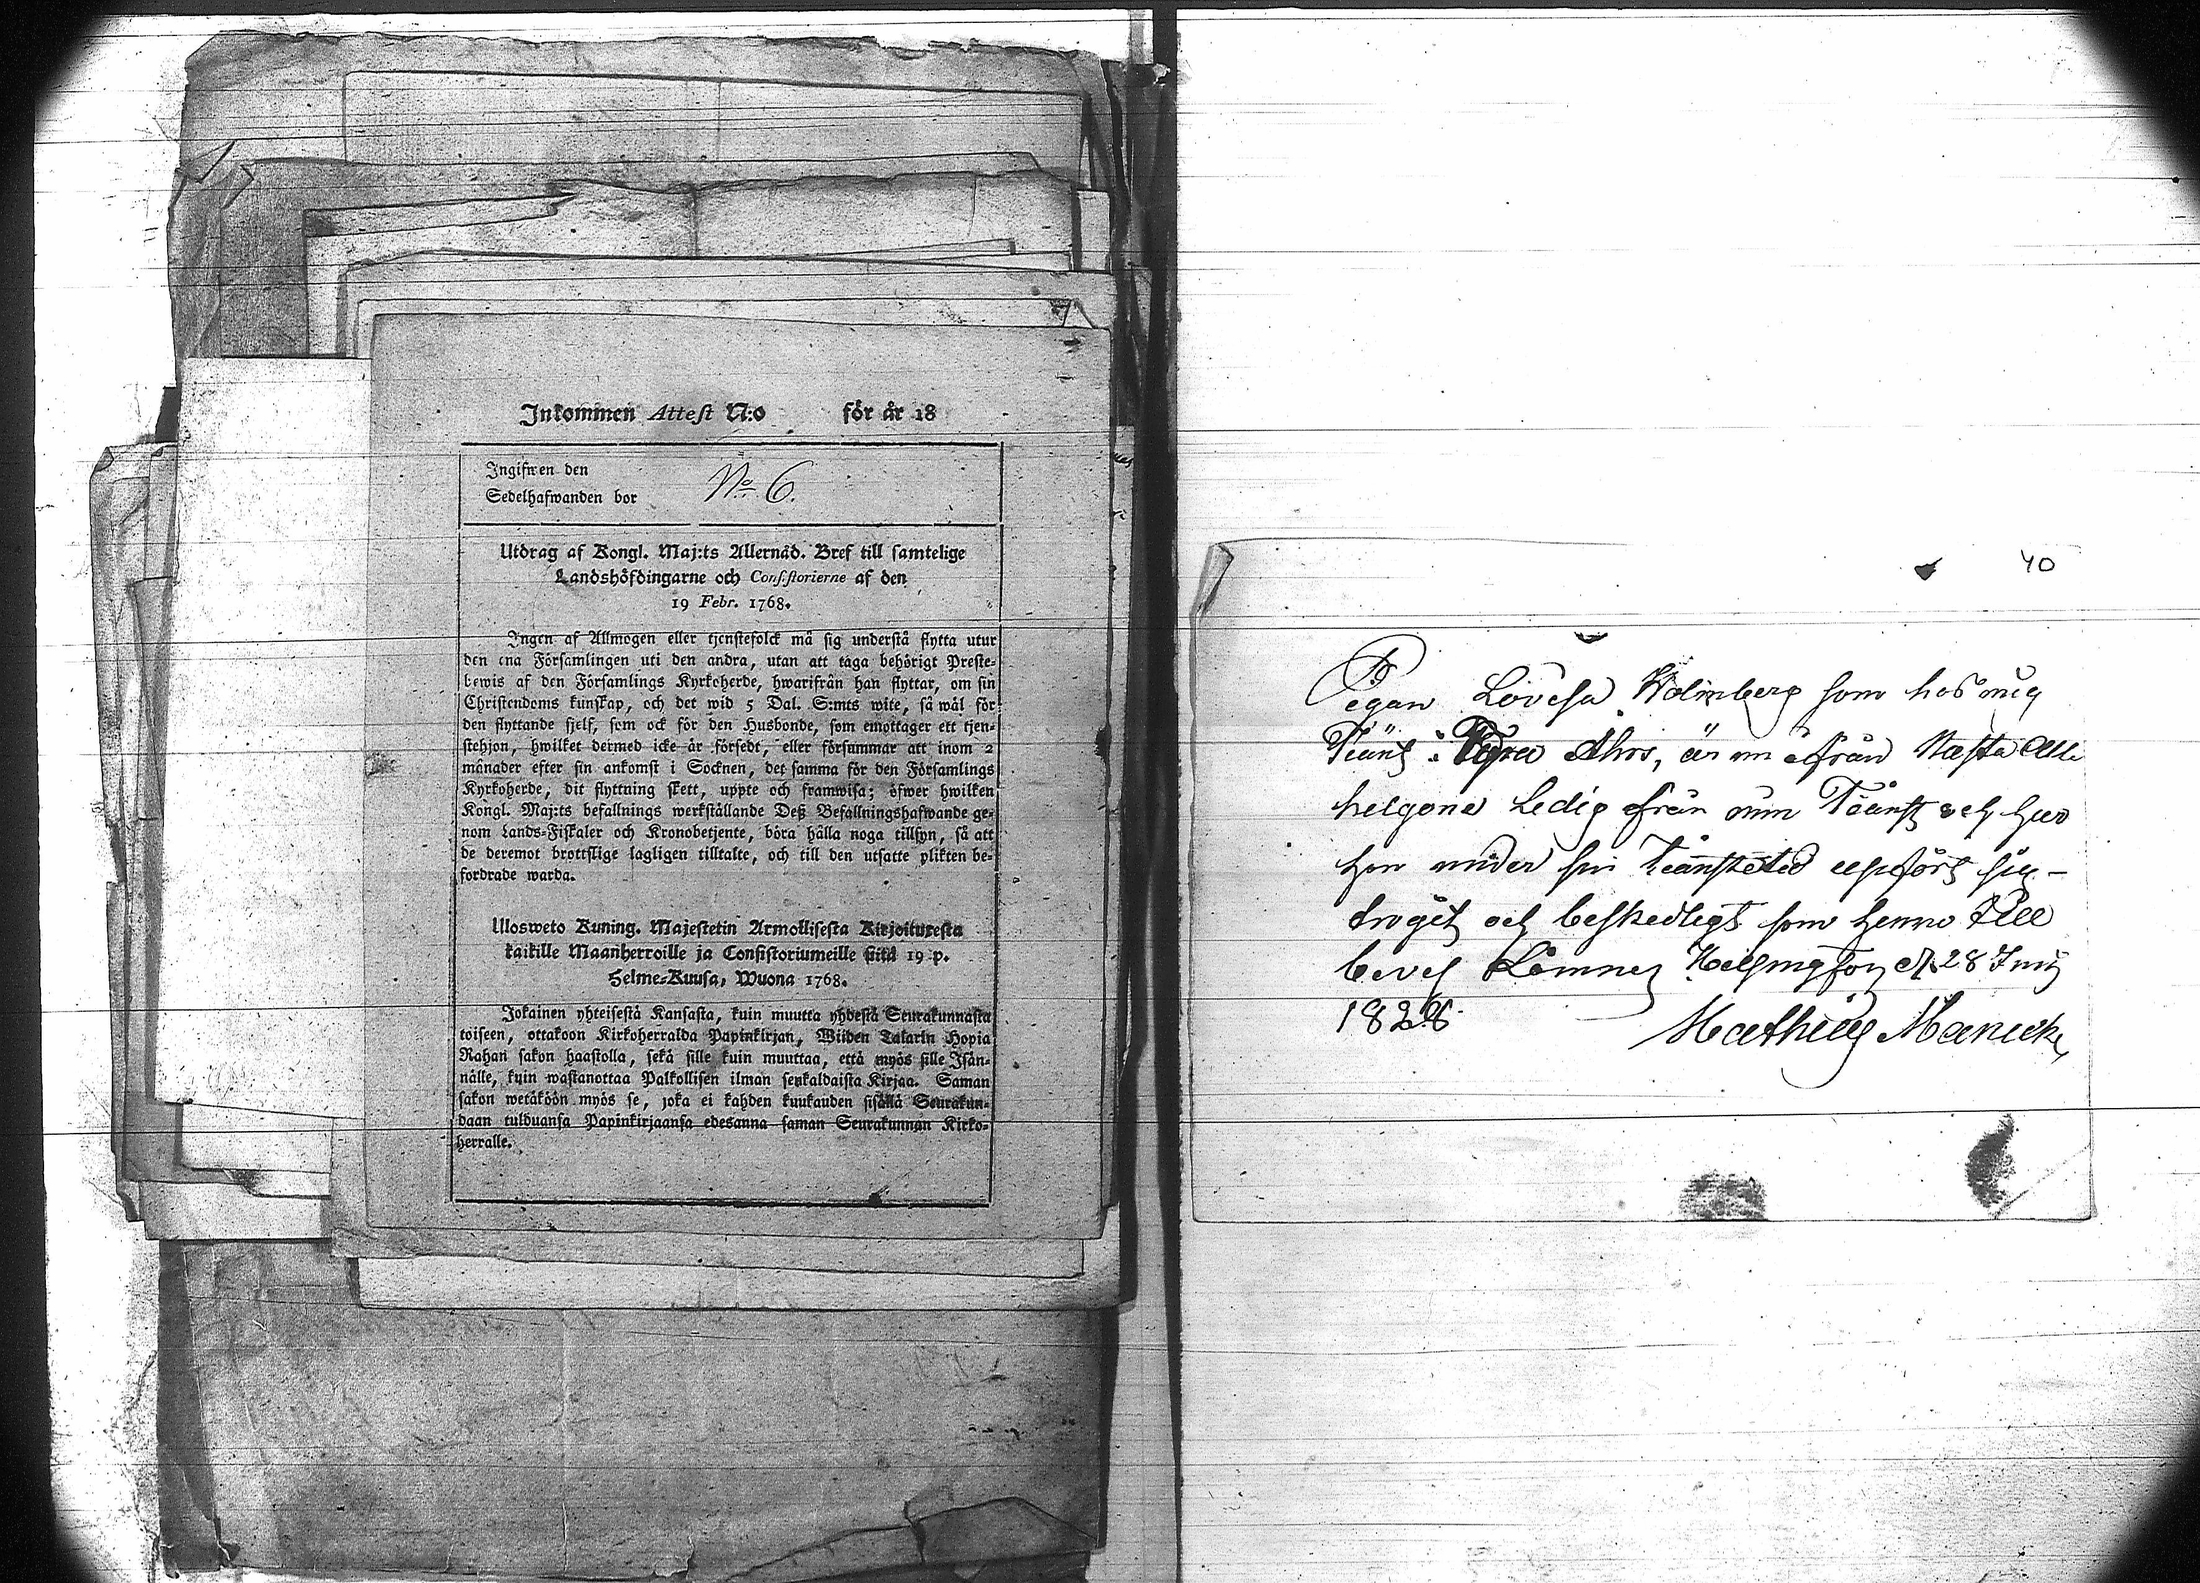 Inkommen Attest N:o för år 18
Ingifwen den
Sedelhafwanden bor
No 6.
Utdrag af Kongl. Maj:ts Allernåd. Bref till samtelige
Landshöfdingarne och Consistorierne af den
19 Febr. 1768.
Ingen af Allmogen eller tjenstefolck må sig understå flytta utur
den ena Församlingen uti den andra, utan att taga behörigt Preste-
bewis af den Församlings Kyrkoherde, hwarifrån han flyttar, om sin
Christendoms kunskap, och det wid 5 Dal. S:mts wite, så wäl för
den flyttande sjelf, som ock för den Husbonde, som emottager ett tjen-
stehjon, hwilket dermed icke är försedt, eller försummar att inom 2
månader efter sin ankomst i Socknen, det samma för den Församlings
Kyrkoherde, dit flyttning skett, uppte och framwisa; öfwer hwilken
Kongl. Maj:ts befallnings werkställande Deß Befallningshafwande ge-
nom Lands-Fiskaler och Kronobetjente, böra hålla noga tillsyn, så att
de deremot brottslige lagligen tilltalte, och till den utsatte plikten be-
fordrade warda.
Ulosweto Kuning. Majestetin Armollisesta Kirjoituresta
kaikille Maanherroille ja Consistoriumeille siitä 19 p.
Helme-Kuusa, Wuona 1768.
Jokainen yhteisestä Kansasta, kuin muutta yhdestä Seurakunnasta
toiseen, ottakoon Kirkoherralda Papinkirjan, Wiiden Talarin Hopia
Rahan sakon haastolla, sekä sille kuin muuttaa, että myös sille Isän-
nälle, kuin wastanottaa Palkollisen ilman senkaldaista Kirjaa. Saman
sakon wetäköön myös se, joka ei kahden kuukauden sisällä Seurakun-
daan tulduansa Papinkirjaansa edesanna saman Seurakunnan Kirko-
herralle.
40
Pegan Lovesa Holmberg som hos mig
Tiänt i Åhrs, är nu ifrån Nästa Alla
helgona Ledig från min Tiänst och har
hon under sin tiänstetid uppfört sig -
troget och beskedligt som henne till
bevis Lämnes Helsingfors d. 28 Junij
1826.
Mathias